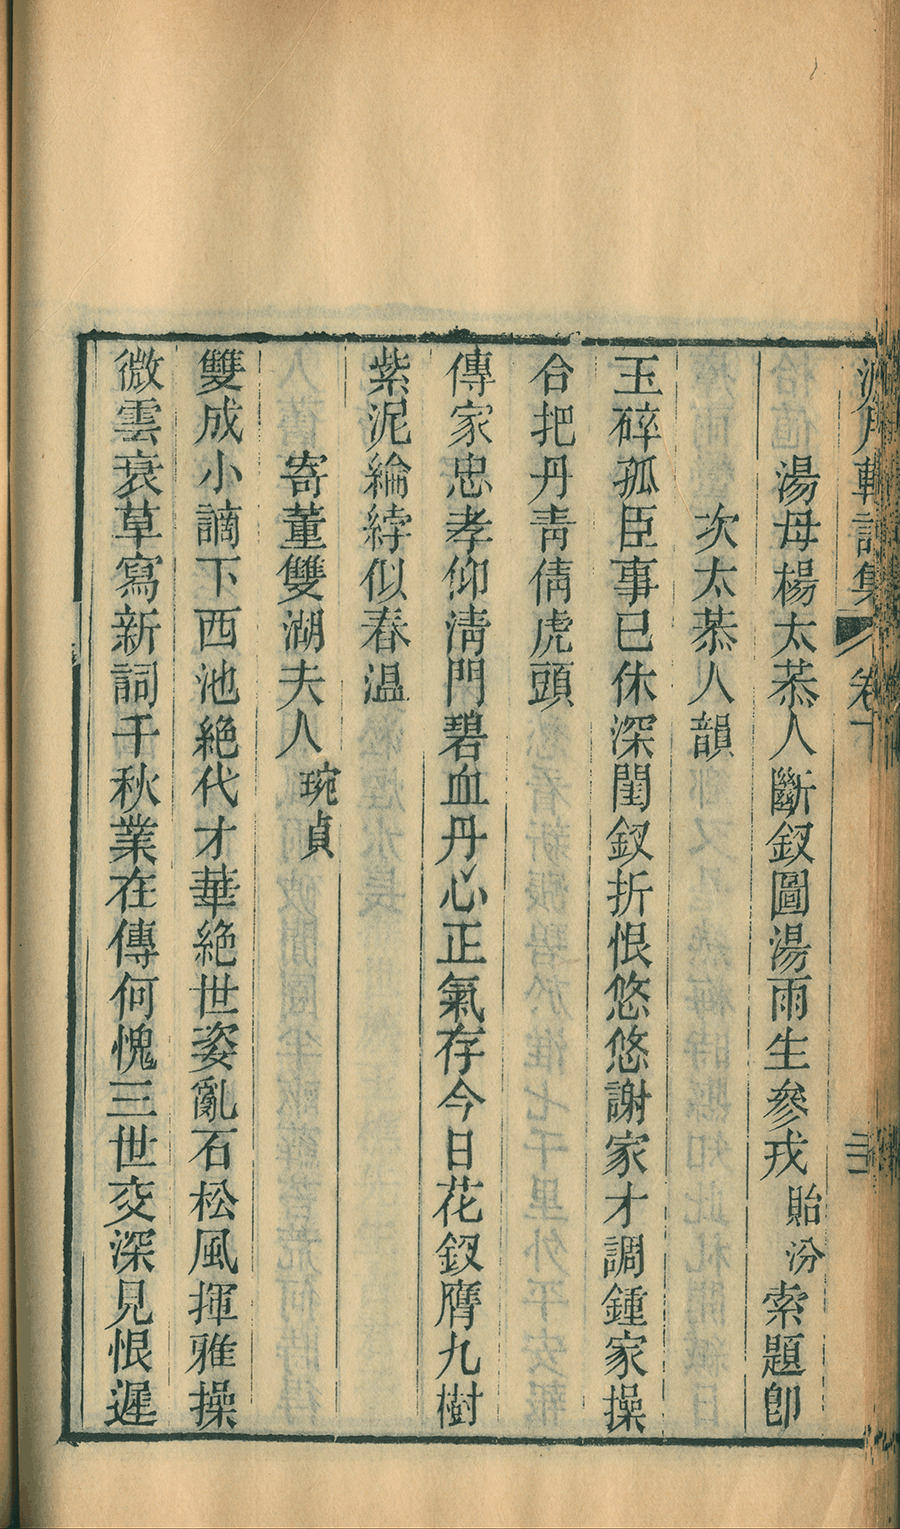 湯母楊太恭人斷釵圖湯雨生參戎貽汾索題卽
次太恭人韻
玉碎孤臣事已休深閨釵折恨悠悠謝家才調鍾家操
合把丹青倩虎頭
傳家忠孝仰淸門碧血丹心正氣存今日花釵膺九樹
紫泥綸綍似春溫
寄董雙湖夫人琬貞
雙成小謫下西池絕代才華絕世姿亂石松風揮雅操
微雲衰草寫新詞千秋業在傳何愧三世交深見恨遲